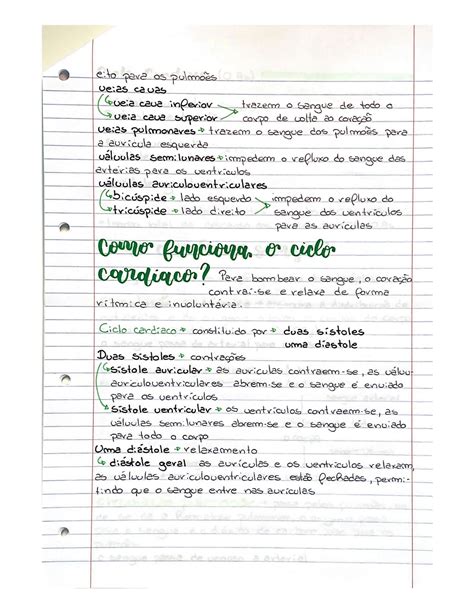 eito para os pulmões
veias cavas
↳ veia cava inferior
↳ veia cava superior
trazem o sangue de todo o
corpo de volta ao coração
veias pulmonares → trazem o sangue dos pulmões para
a aurícula esquerda
válvulas semilunares → impedem o refluxo do sangue das
artérias para os ventrículos
válvulas auriculoventriculares
↳ bicúspide → lado esquerdo
↳ tricúspide → lado direito
impedem o refluxo do
sangue dos ventrículos
para as aurículas
Como funciona o ciclo
cardíaco? Para bombear o sangue, o coração
contrai-se e relaxa de forma
rítmica e involuntária.
Ciclo cardíaco → constituído por → duas sístoles
uma diástole
Duas sístoles → contrações
↳ sístole auricular → as aurículas contraem-se, as válvu-
auriculoventriculares abrem-se e o sangue é enviado
para os ventrículos
↳ sístole ventricular → os ventrículos contraem-se, as
válvulas semilunares abrem-se e o sangue é enviado
para todo o corpo
Uma diástole → relaxamento
↳ diástole geral as aurículas e os ventrículos relaxam,
as válvulas auriculoventriculares estão fechadas, permi-
tindo que o sangue entre nas aurículas